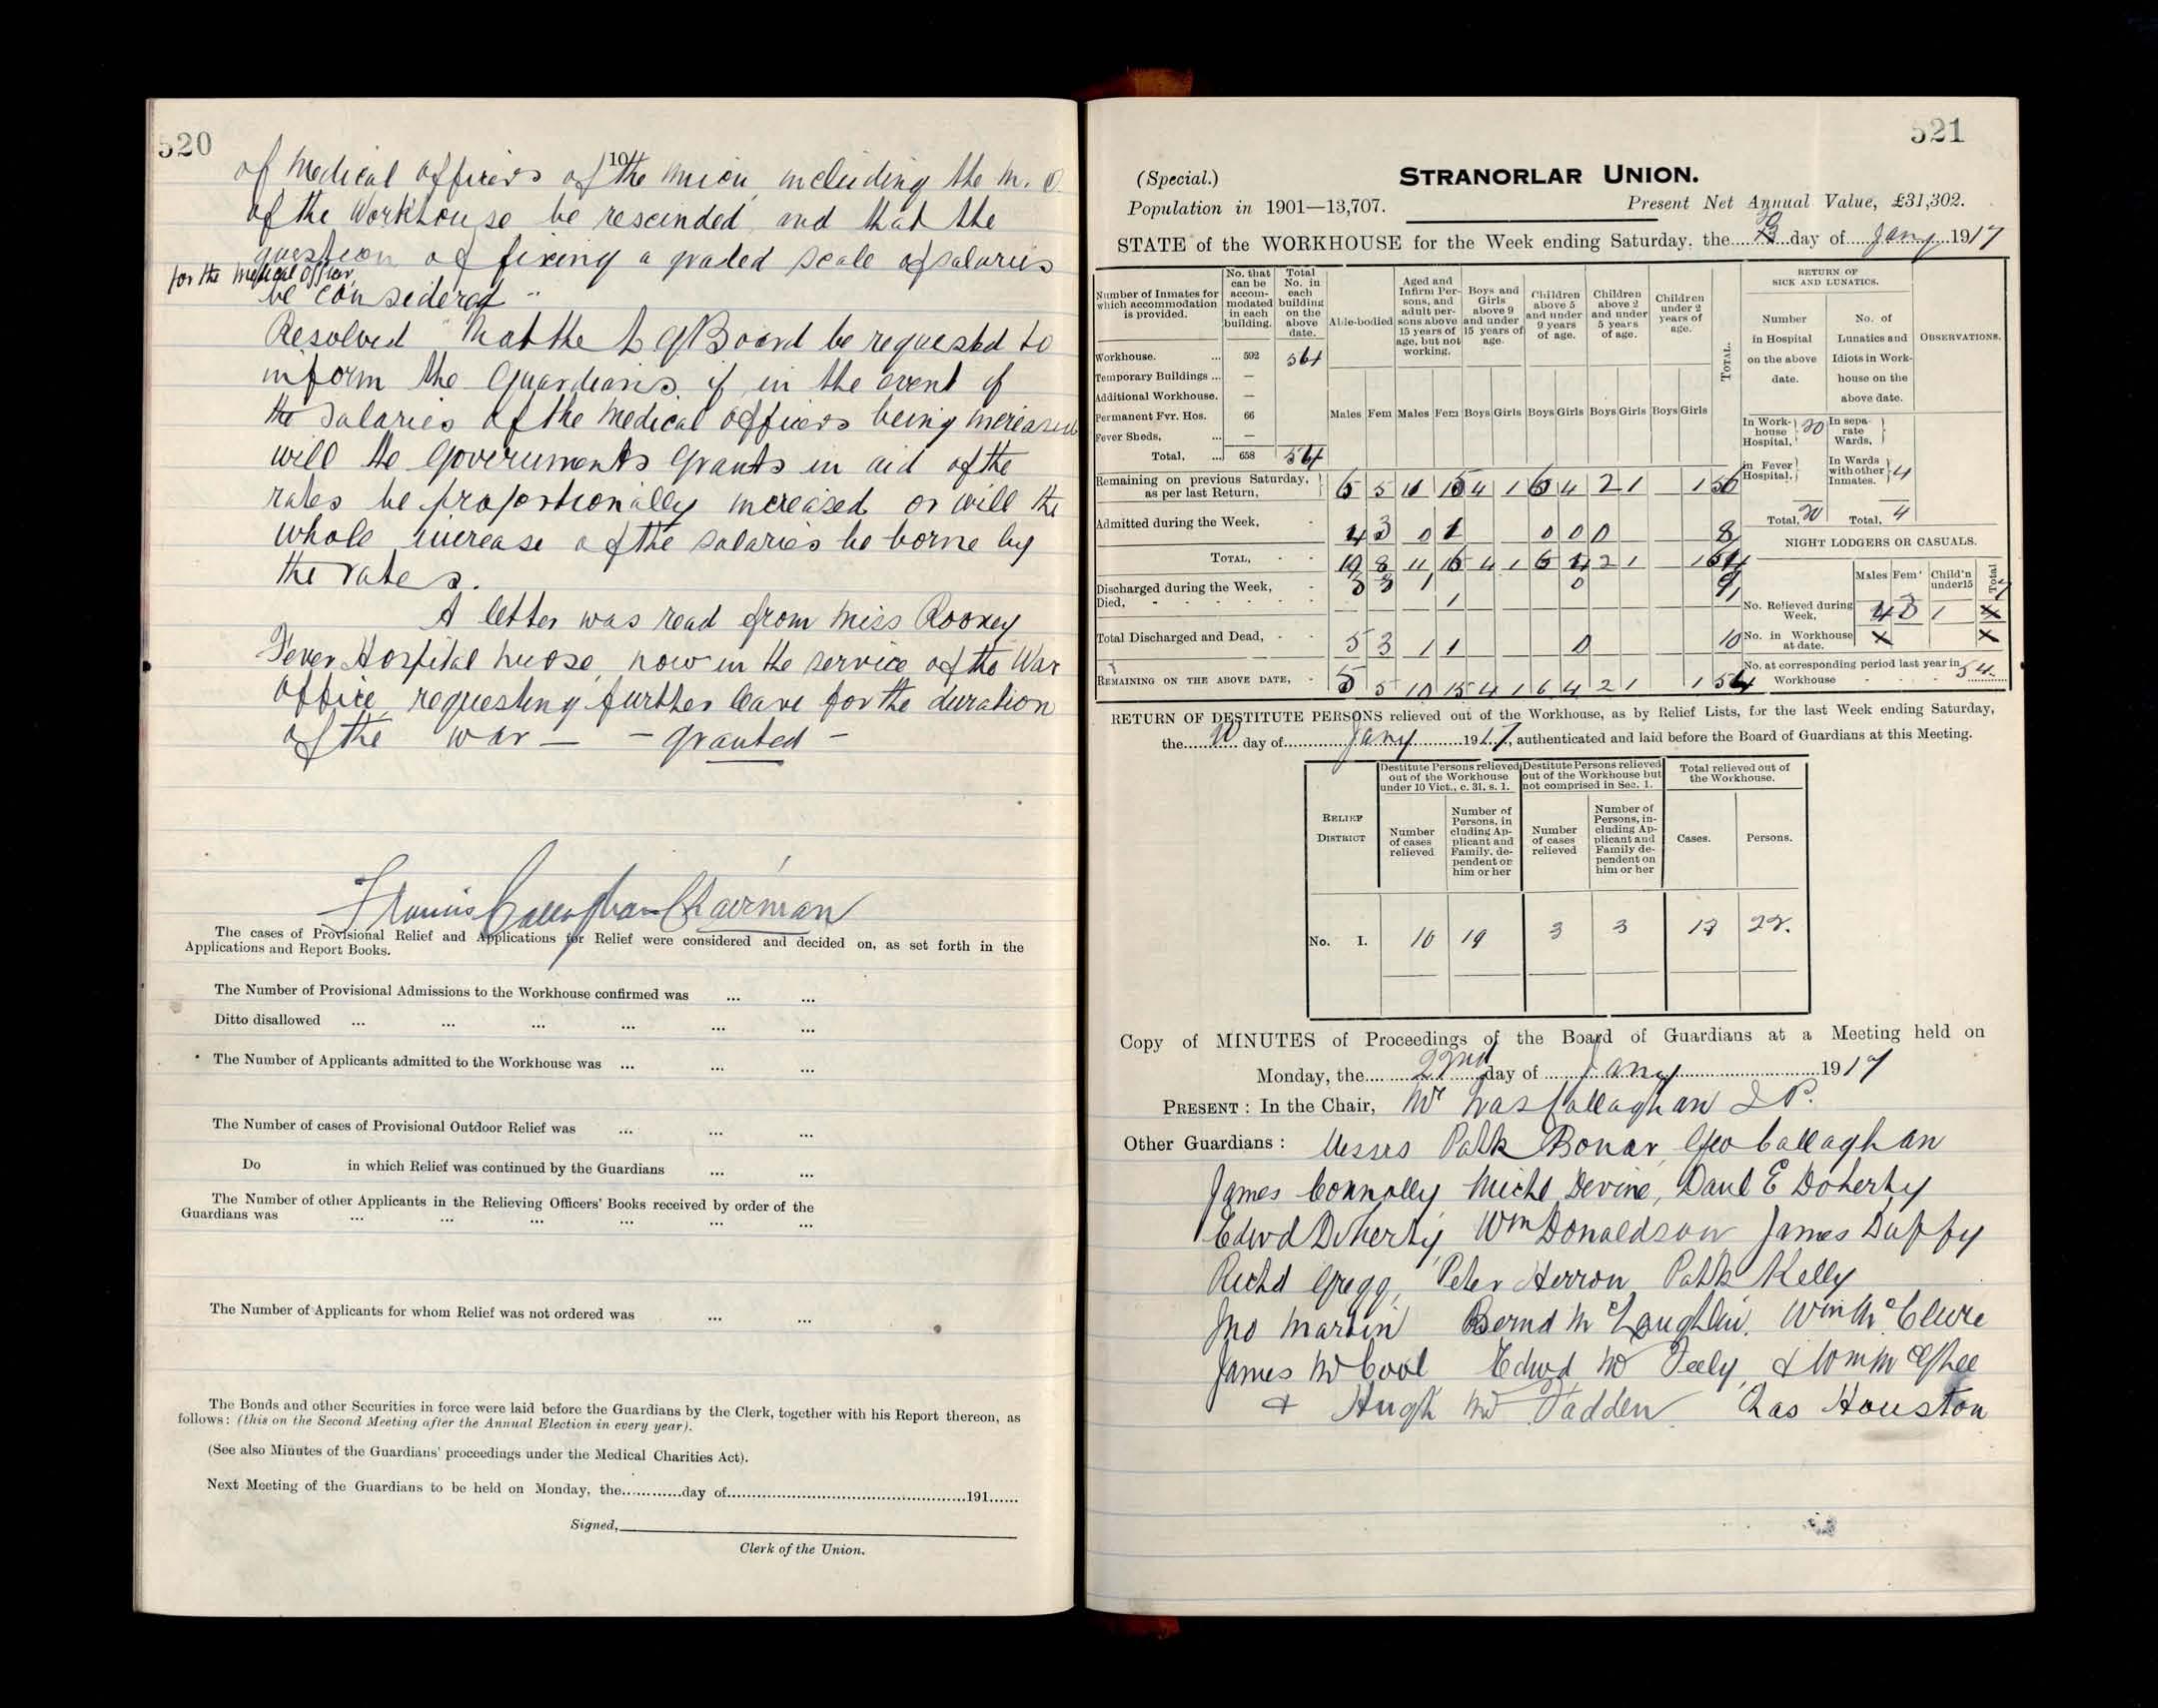 520
10
of Medical Officers of the Union including the M. O.
of the Workhouse be rescinded and that the
question of fixing a graded scale of salaries
for the Medical Officer
be considered
Resolved That the L G Board be requested to
inform the Guardians if in the event of
the Salaries of the Medical Officers being increased
will the Governments Grants in aid of the
rates be proportionally increased or will the
whole increase of the salaries be borne by
the rates.
A letter was read from Miss Rooney
Fever Hospital Nurse, now in the service of the War
Office requesting further leave for the duration
of the war — - granted -
Francis Callaghan Chairman
The cases of Provisional Relief and Applications for Relief were considered and decided on, as set forth in the
Applications and Report Books.
The Number of Provisional Admissions to the Workhouse confirmed was ... ...
Ditto disallowed ... ... ... ... ... ...
The Number of Applicants admitted to the Workhouse was ... ... ...
The Number of cases of Provisional Outdoor Relief was ... ... ...
Do in which Relief was continued by the Guardians ... ...
The Number of other Applicants in the Relieving Officers' Books received by order of the
Guardians was ... ... ... ... ... ...
The Number of Applicants for whom Relief was not ordered was ... ...
The Bonds and other Securities in force were laid before the Guardians by the Clerk, together with his Report thereon, as
follows: (this on the Second Meeting after the Annual Election in every year).
(See also Minutes of the Guardians' proceedings under the Medical Charities Act).
Next Meeting of the Guardians to be held on Monday, the............day of.............................................191......
Signed,
Clerk of the Union.
521
(Special.) STRANORLAR UNION.
Population in 1901—13,707. Present Net Annual Value, £31,302.
STATE of the WORKHOUSE for the Week ending Saturday, the day of Jany 1917
Number of Inmates for which accommodation is provided.
No. that can be accommodated in each building.
Total No. in each building on the above date.
Able-bodied
Aged and Infirm Persons, and adult persons above 15 years of age, but not working.
Boys and Girls above 9 and under 15 years of age.
Children above 5 and under 9 years of age.
Children above 2 and under 5 years of age.
Children under 2 years of age.
TOTAL.
RETURN OF SICK AND LUNATICS.
Number in Hospital on the above date.
No. of Lunatics and Idiots in Workhouse on the above date.
OBSERVATIONS.
Workhouse. ... 592 54
Temporary Buildings ... —
Additional Workhouse. —
Permanent Fvr. Hos. 66
Fever Sheds, ... —
Total, ... 658 54
Males Fem Males Fem Boys Girls Boys Girls Boys Girls Boys Girls
In Workhouse Hospital, 20 In separate Wards,
In Fever Hospital. In Wards with other Inmates. 4
Total, 20 Total, 4
Remaining on previous Saturday, as per last Return, 6 5 11 15 4 1 6 4 2 1 1 56
Admitted during the Week, 4 3 0 1 0 0 0 8
TOTAL, 10 8 11 16 4 1 6 4 2 1 1 64
Discharged during the Week, 3 1 0 9
Died, 1
Total Discharged and Dead, 5 3 1 1 0 10
REMAINING ON THE ABOVE DATE, 5 5 10 15 4 1 6 4 2 1 1 54
NIGHT LODGERS OR CASUALS.
Males Fem Child'n under15 Total
No. Relieved during Week, 4 3 1
No. in Workhouse at date.
No. at corresponding period last year in Workhouse 54
RETURN OF DESTITUTE PERSONS relieved out of the Workhouse, as by Relief Lists, for the last Week ending Saturday,
the 20 day of Jany 1917, authenticated and laid before the Board of Guardians at this Meeting.
RELIEF DISTRICT
Destitute Persons relieved out of the Workhouse under 10 Vict., c. 31, s. 1.
Destitute Persons relieved out of the Workhouse but not comprised in Sec. 1.
Total relieved out of the Workhouse.
Number of cases relieved
Number of Persons, including Applicant and Family, dependent on him or her
Number of cases relieved
Number of Persons, including Applicant and Family dependent on him or her
Cases.
Persons.
No. I. 10 19 3 3 13 22.
Copy of MINUTES of Proceedings of the Board of Guardians at a Meeting held on
Monday, the 22nd day of Jany 1917
PRESENT: In the Chair, Mr Fras Callaghan J P.
Other Guardians: Messrs Patk Bonar, Geo Callaghan
James Connolly, Michl Devine, Danl E Doherty
Edwd Doherty, Wm Donaldson James Duffy
Richd Gregg, Peter Herron, Patk Kelly
Jno Martin Bernd McLoughlin, Wm McClure
James McCool Edwd Mc Feely, & Wm McGhee
& Hugh Mc Fadden Chas Houston